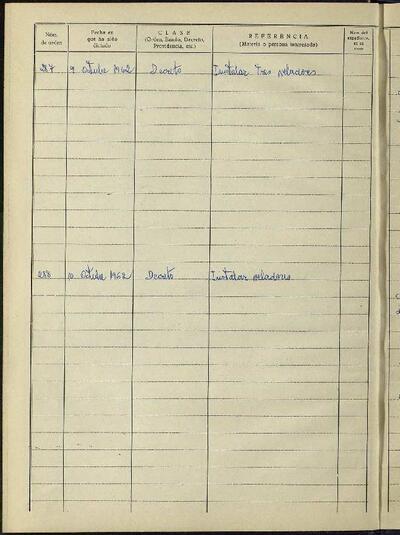 Núm. de orden
Fecha en que ha sido dictado
CLASE
(Orden, Bando, Decreto, Providencia, etc.)
REFERENCIA
(Materia o persona interesada)
Núm. del expediente, en su caso
287 9 octubre 1962 Decreto Instalar tres veladores
288 10 octubre 1962 Decreto Instalar veladores